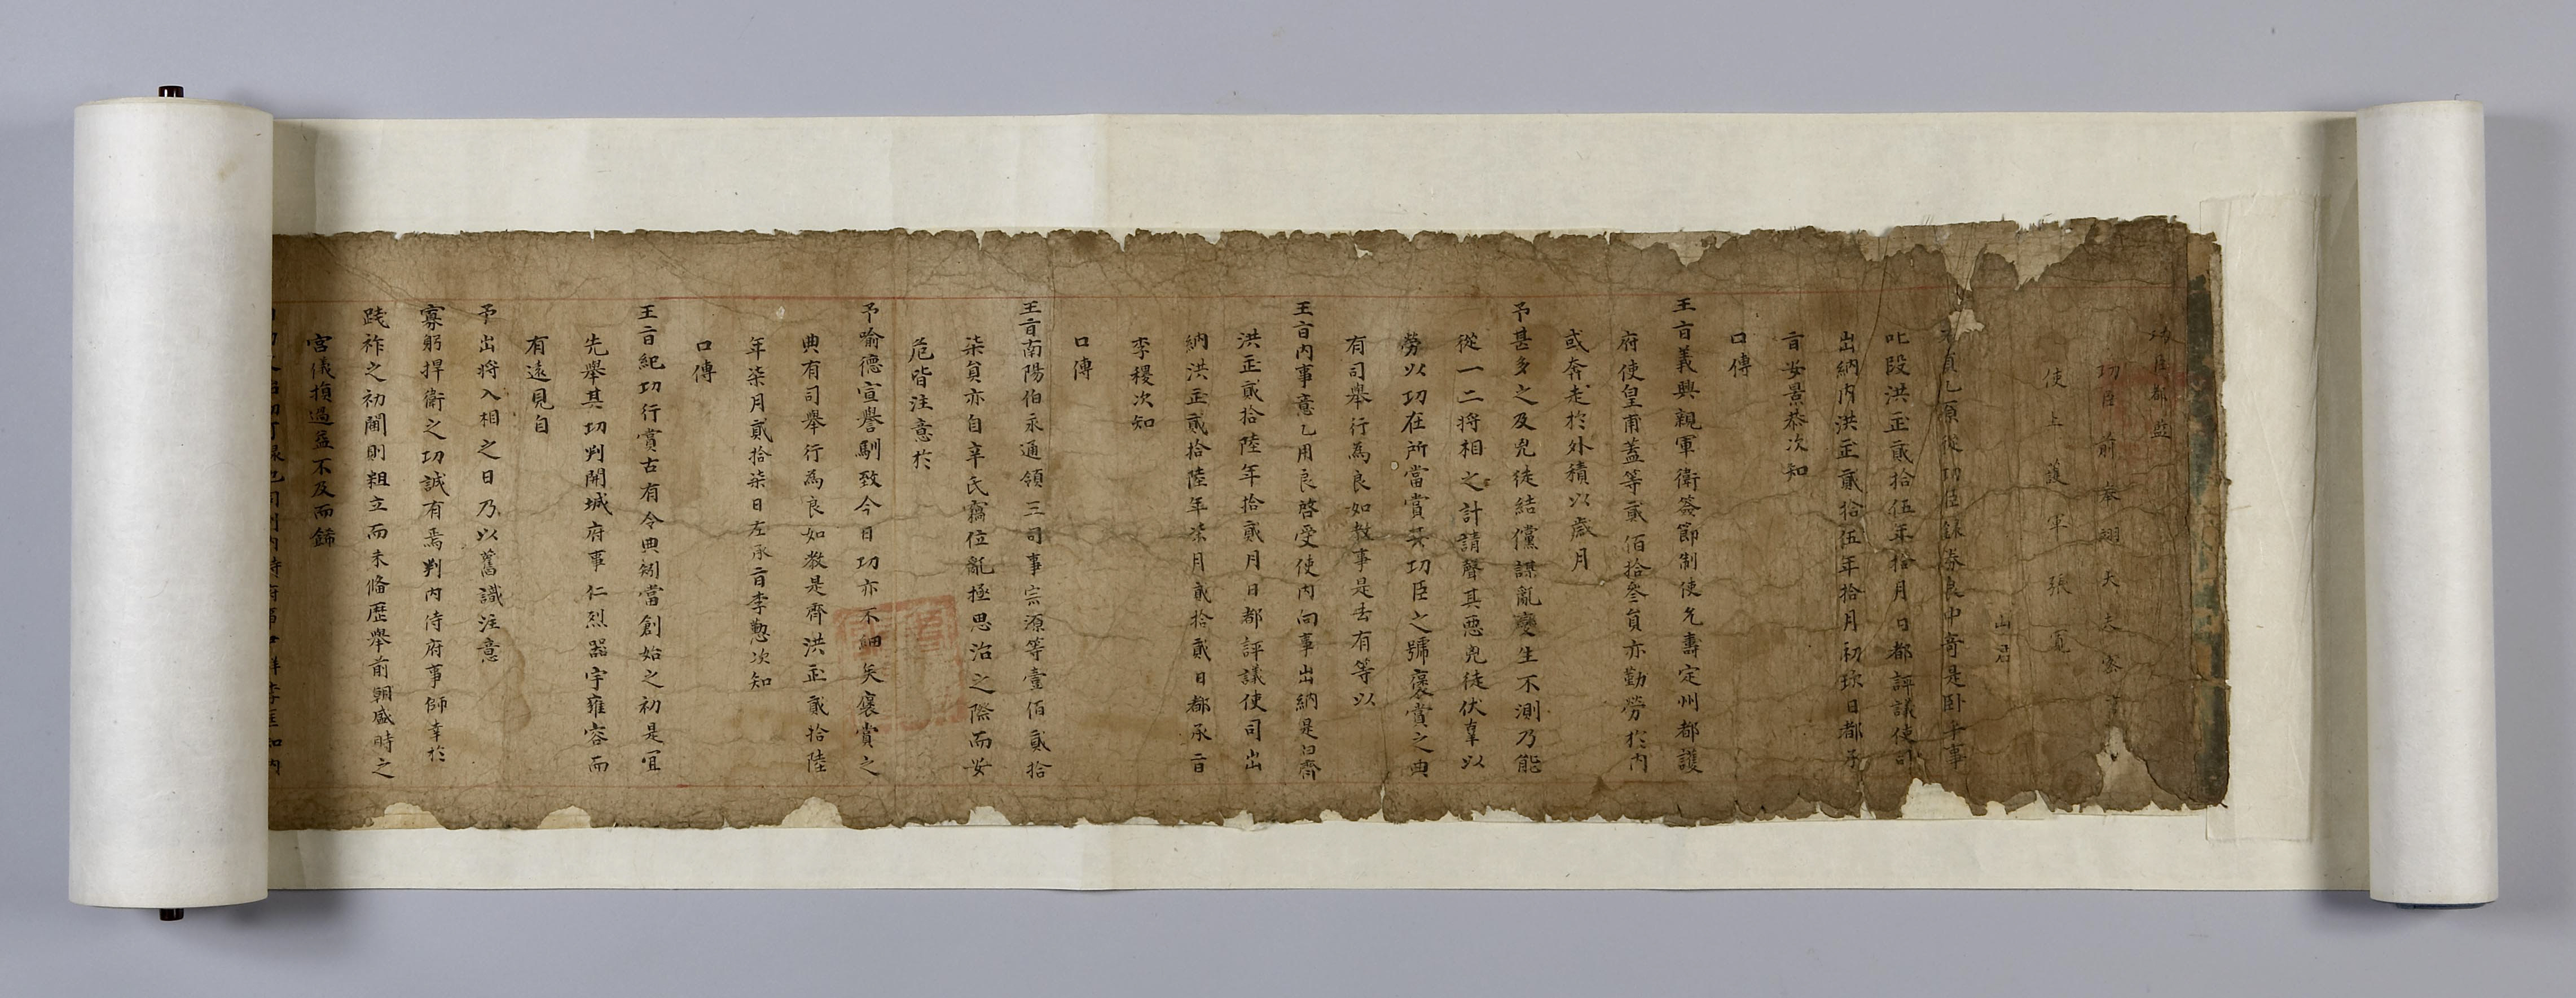 功臣都監
功臣前奉翊大夫
使上護軍張寬
山君
貞乙原從功臣錄券良中奇是臥乎事
叱段洪武貳拾伍年拾月日都評議使司
出納內洪武貳拾伍年拾月初玖日都承
旨安景恭次知
口傳
王旨義興親軍衛簽節制使允壽定州都護
府使皇甫蓋等貳佰拾叄員亦勤勞於內
或奔走於外積以歲月
予甚多之及兇徒結儻謀亂變生不測乃能
從一二將相之計請聲其惡兇徒伏辜以
勞以功在所當賞其功臣之號褒賞之典
有司舉行爲良如敎事是去有等以
王旨內事意乙用良啓受使內向事出納是白齊
洪武貳拾陸年拾貳月日都評議使司出
納洪武貳拾陸年柒月貳拾貳日都承旨
李稷次知
口傳
王旨南陽伯永通領三司事宗源等壹佰貳拾
柒員亦自辛氏竊位亂極思治之際而安
危皆注意於
予喻德宣譽馴致今日功亦不細矣褒賞之
典有司舉行爲良如敎是齊洪武貳拾陸
年柒月貳拾柒日左承旨李懃次知
口傳
王旨紀功行賞古有令典矧當創始之初是宜
先舉其功判開城府事仁烈器宇雍容而
有遠見自
予出將入相之日乃以舊識注意
寡躬捍衛之功誠有焉判內侍府事師幸於
踐祚之初閫則粗立而未備歷舉前朝盛時之
宮儀損過益不及而鋪